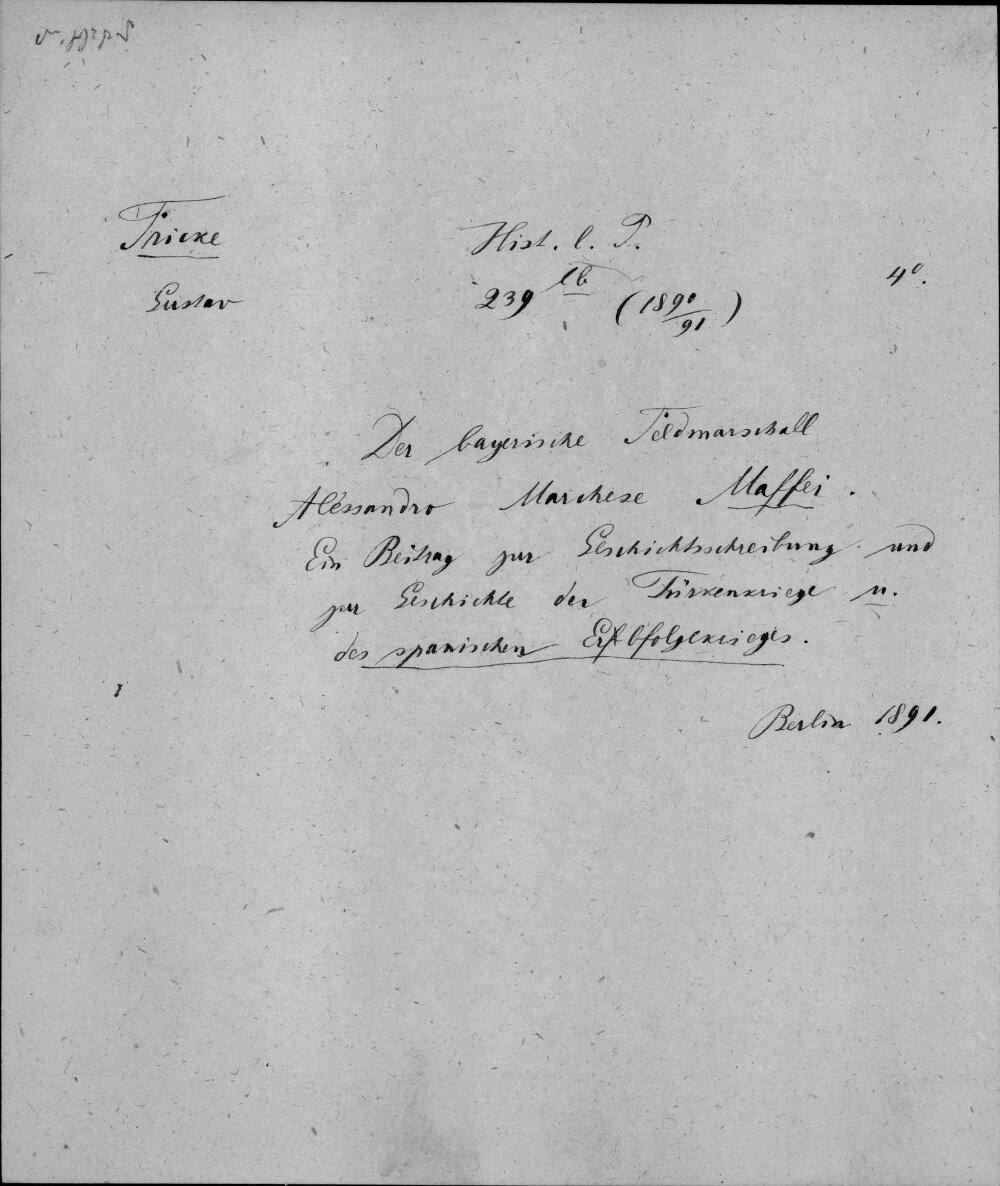 Fricke
Hist. l. P.
4°.
Gustav
239 lb (1890/91)
Der bayerische Feldmarschall
Alessandro Marchese Maffei.
Ein Beitrag zur Geschichtsschreibung und
zur Geschichte der Türkenkriege u.
des spanischen Erbfolgekrieges.
Berlin 1891.